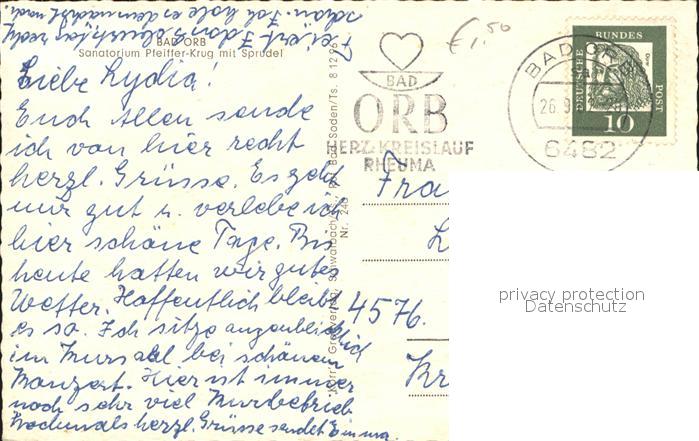 BAD ORB
Sanatorium Pfeiffer-Krug mit Sprudel
Liebe Lydia!
Euch Allen sende
ich von hier recht
herzl. Grüsse. Es geht
mir gut u. verlebe ich
hier schöne Tage. Bis
heute hatten wir gutes
Wetter. Hoffentlich bleibt
es so. Ich sitze augenblicklich
im Kursaal bei schönem
Konzert. Hier ist immer
noch sehr viel Kurbetrieb
Nochmals herzl. Grüsse sendet Emma.
schön. Ich hole es demnächst nach.
€ 1,50
BAD
ORB
HERZ-KREISLAUF
RHEUMA
BAD ORB
26.9.
6482
DEUTSCHE
BUNDES
POST
10
8 12 96
Bad Soden/Ts.
Nr. 240
Frau
L
4576.
Kr
privacy protection
Datenschutz